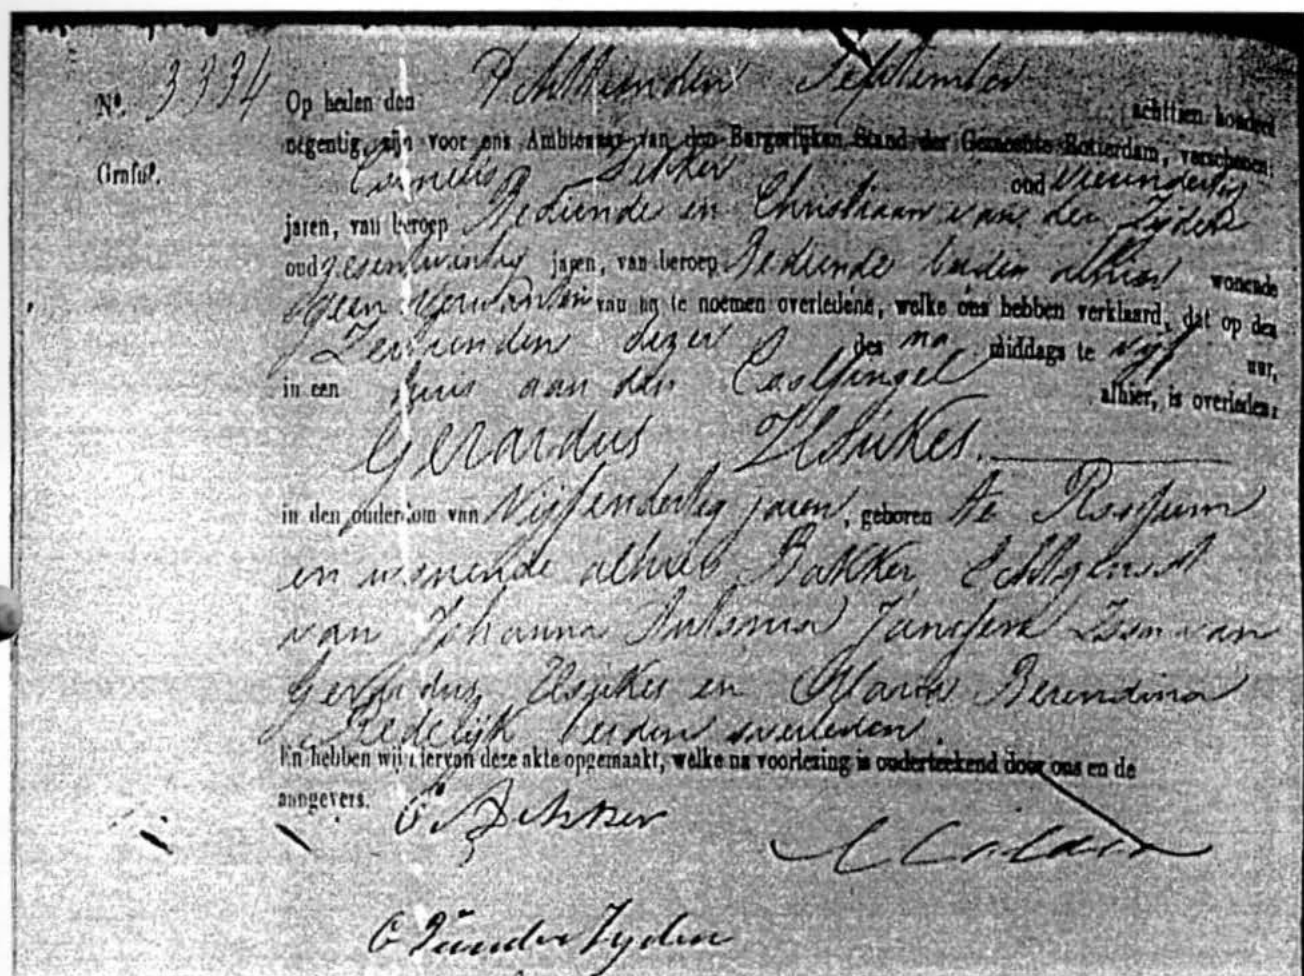 No. 3334 Op heden den Achttienden September achttien honderd
negentig, zijn voor ons Ambtenaar van den Burgerlijken Stand der Gemeente Rotterdam, verschenen:
Cornelis Dekker oud vierendertig
jaren, van beroep Bediende en Christiaan van der Zijden
oud zesentwintig jaren, van beroep Bediende beiden alhier wonende
geen verwanten van na te noemen overledene, welke ons hebben verklaard, dat op den
Zestienden dezer des na middags te vijf uur,
in een huis aan den Coolsingel alhier, is overleden:
Gerardus
in den ouderdom van Vijfendertig jaren, geboren te Rossum
en wonende alhier Bakker, Echtgenoot
van Johanna Antonia Janssen Zoon van
Gerardus en Maria Berendina
beiden overleden.
En hebben wij hiervan deze akte opgemaakt, welke na voorlezing is onderteekend door ons en de
aangevers. C. Dekker
C van der Zijden